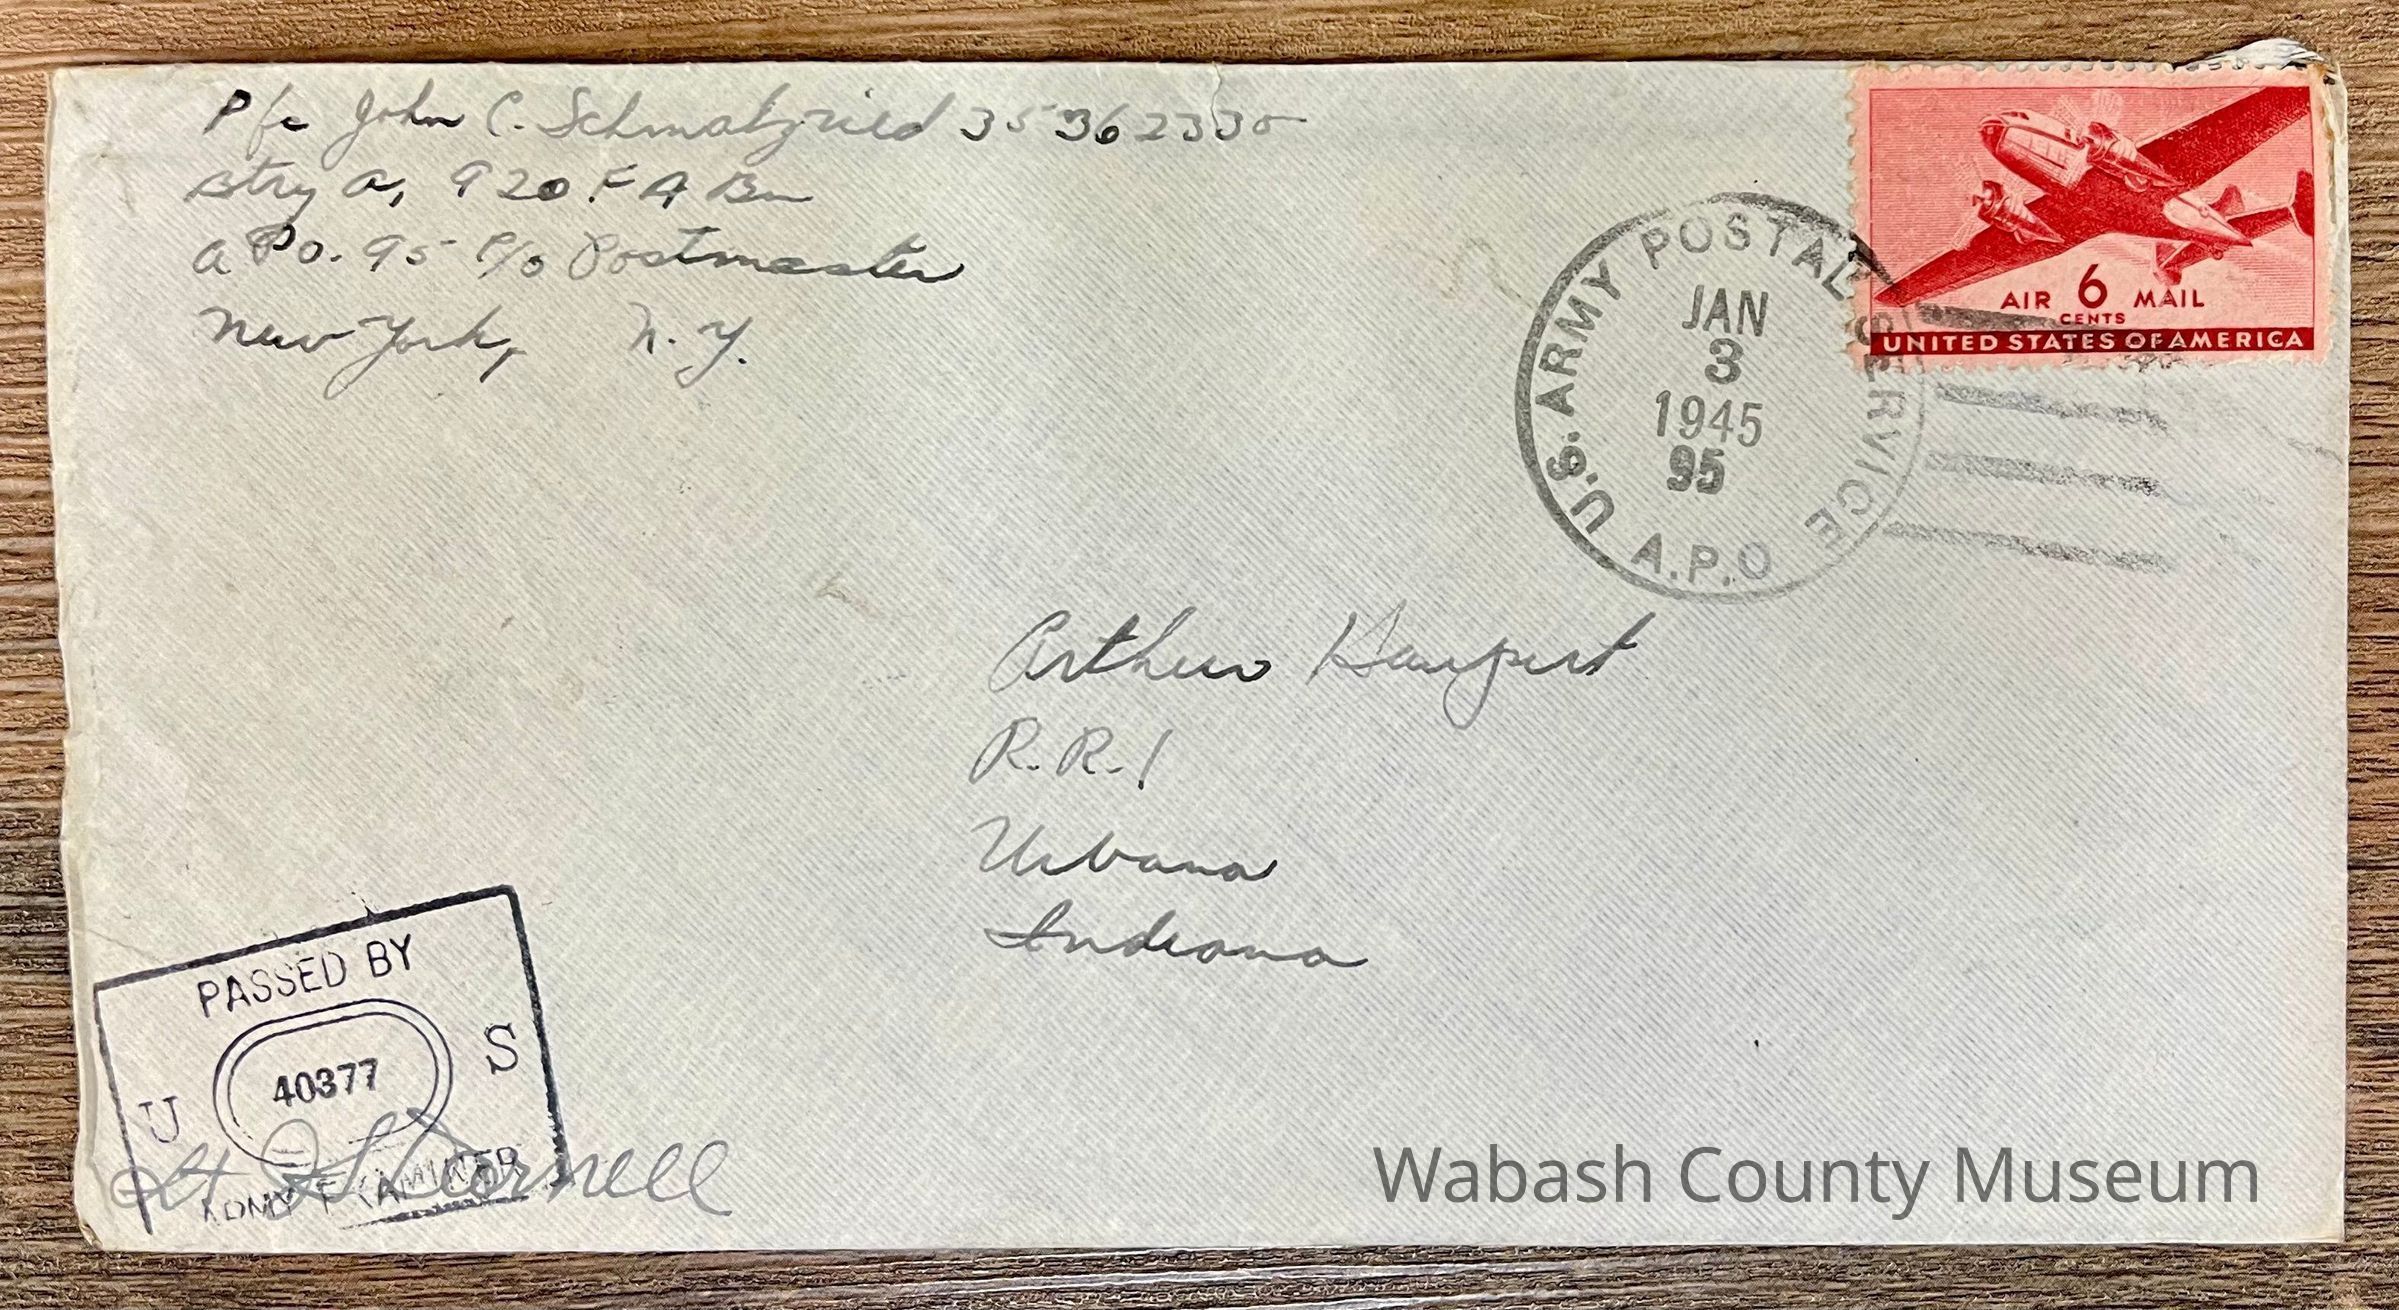 Pfc John C. Schmalzried 35362330
Btry A, 920 F A Bn
A P O. 95 c/o Postmaster
New York, N. Y.
AIR 6 MAIL
CENTS
UNITED STATES OF AMERICA
U.S. ARMY POSTAL SERVICE
JAN
3
1945
95
A.P.O
Arthur Haupert
R.R. 1
Urbana
Indiana
PASSED BY
U S
40377
ARMY EXAMINER
Lt Cornell
Wabash County Museum